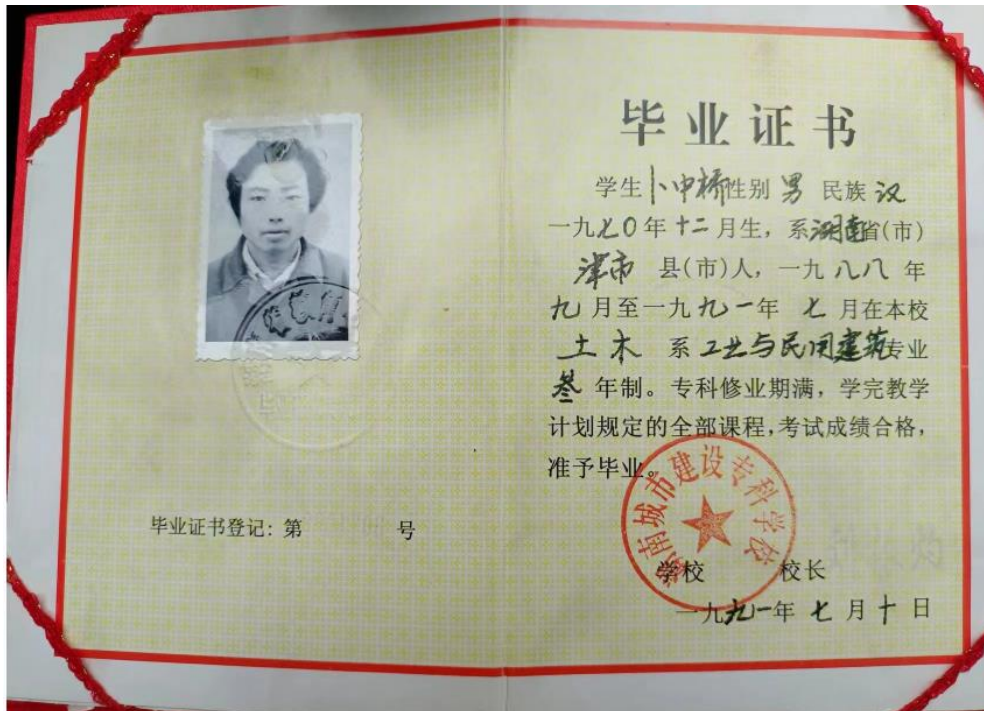 毕业证书登记：第 号
毕业证书
学生卜中桥性别男民族汉
一九七〇年十二月生，系湖南省(市)
津市 县(市)人，一九八八年
九月至一九九一年 七月在本校
土木 系 工业与民间建筑专业
叁 年制。专科修业期满，学完教学
计划规定的全部课程，考试成绩合格，
准予毕业。
湖南城市建设专科学校
学校 校长
一九九一年七月十日